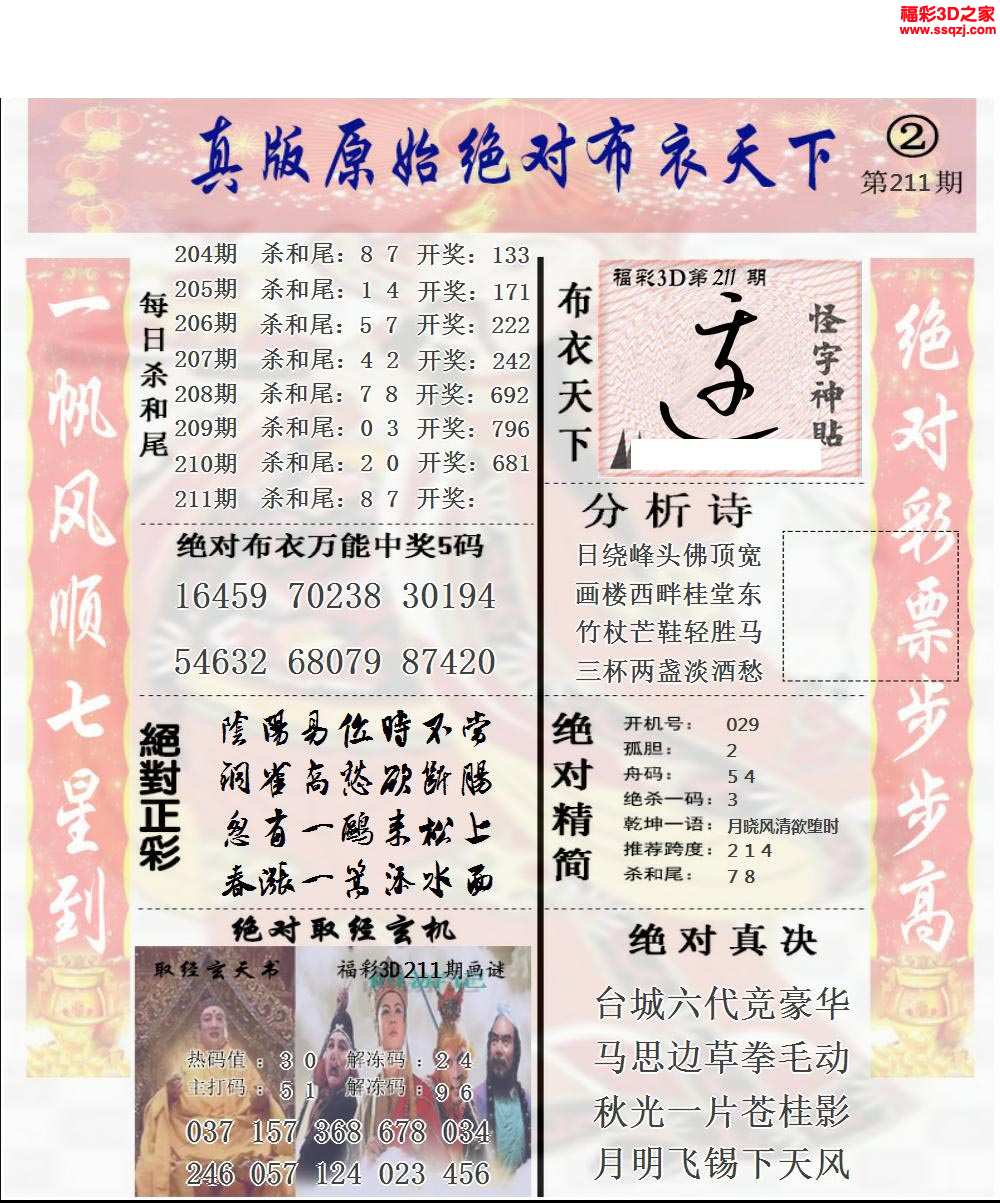 福彩3D之家
www.ssqzj.com
真版原始绝对布衣天下
②
第211期
一帆风顺七星到
每日杀和尾
204期 杀和尾：8 7 开奖：133
205期 杀和尾：1 4 开奖：171
206期 杀和尾：5 7 开奖：222
207期 杀和尾：4 2 开奖：242
208期 杀和尾：7 8 开奖：692
209期 杀和尾：0 3 开奖：796
210期 杀和尾：2 0 开奖：681
211期 杀和尾：8 7 开奖：
绝对布衣万能中奖5码
16459 70238 30194
54632 68079 87420
絕對正彩
陰陽易位時不当
洞雀高愁欲断腸
忽有一鷗来松上
春漲一篙添水西
绝对取经玄机
取经玄天书
福彩3D211期画谜
热码值：3 0 解冻码：2 4
主打码：5 1 解冻码：9 6
037 157 368 678 034
246 057 124 023 456
布衣天下
福彩3D第211期
怪字神贴
分析诗
日绕峰头佛顶宽
画楼西畔桂堂东
竹杖芒鞋轻胜马
三杯两盏淡酒愁
绝对精简
开机号：029
孤胆：2
舟码：5 4
绝杀一码：3
乾坤一语：月晓风清欲堕时
推荐跨度：2 1 4
杀和尾：7 8
绝对真决
台城六代竞豪华
马思边草拳毛动
秋光一片苍桂影
月明飞锡下天风
绝对彩票步步高